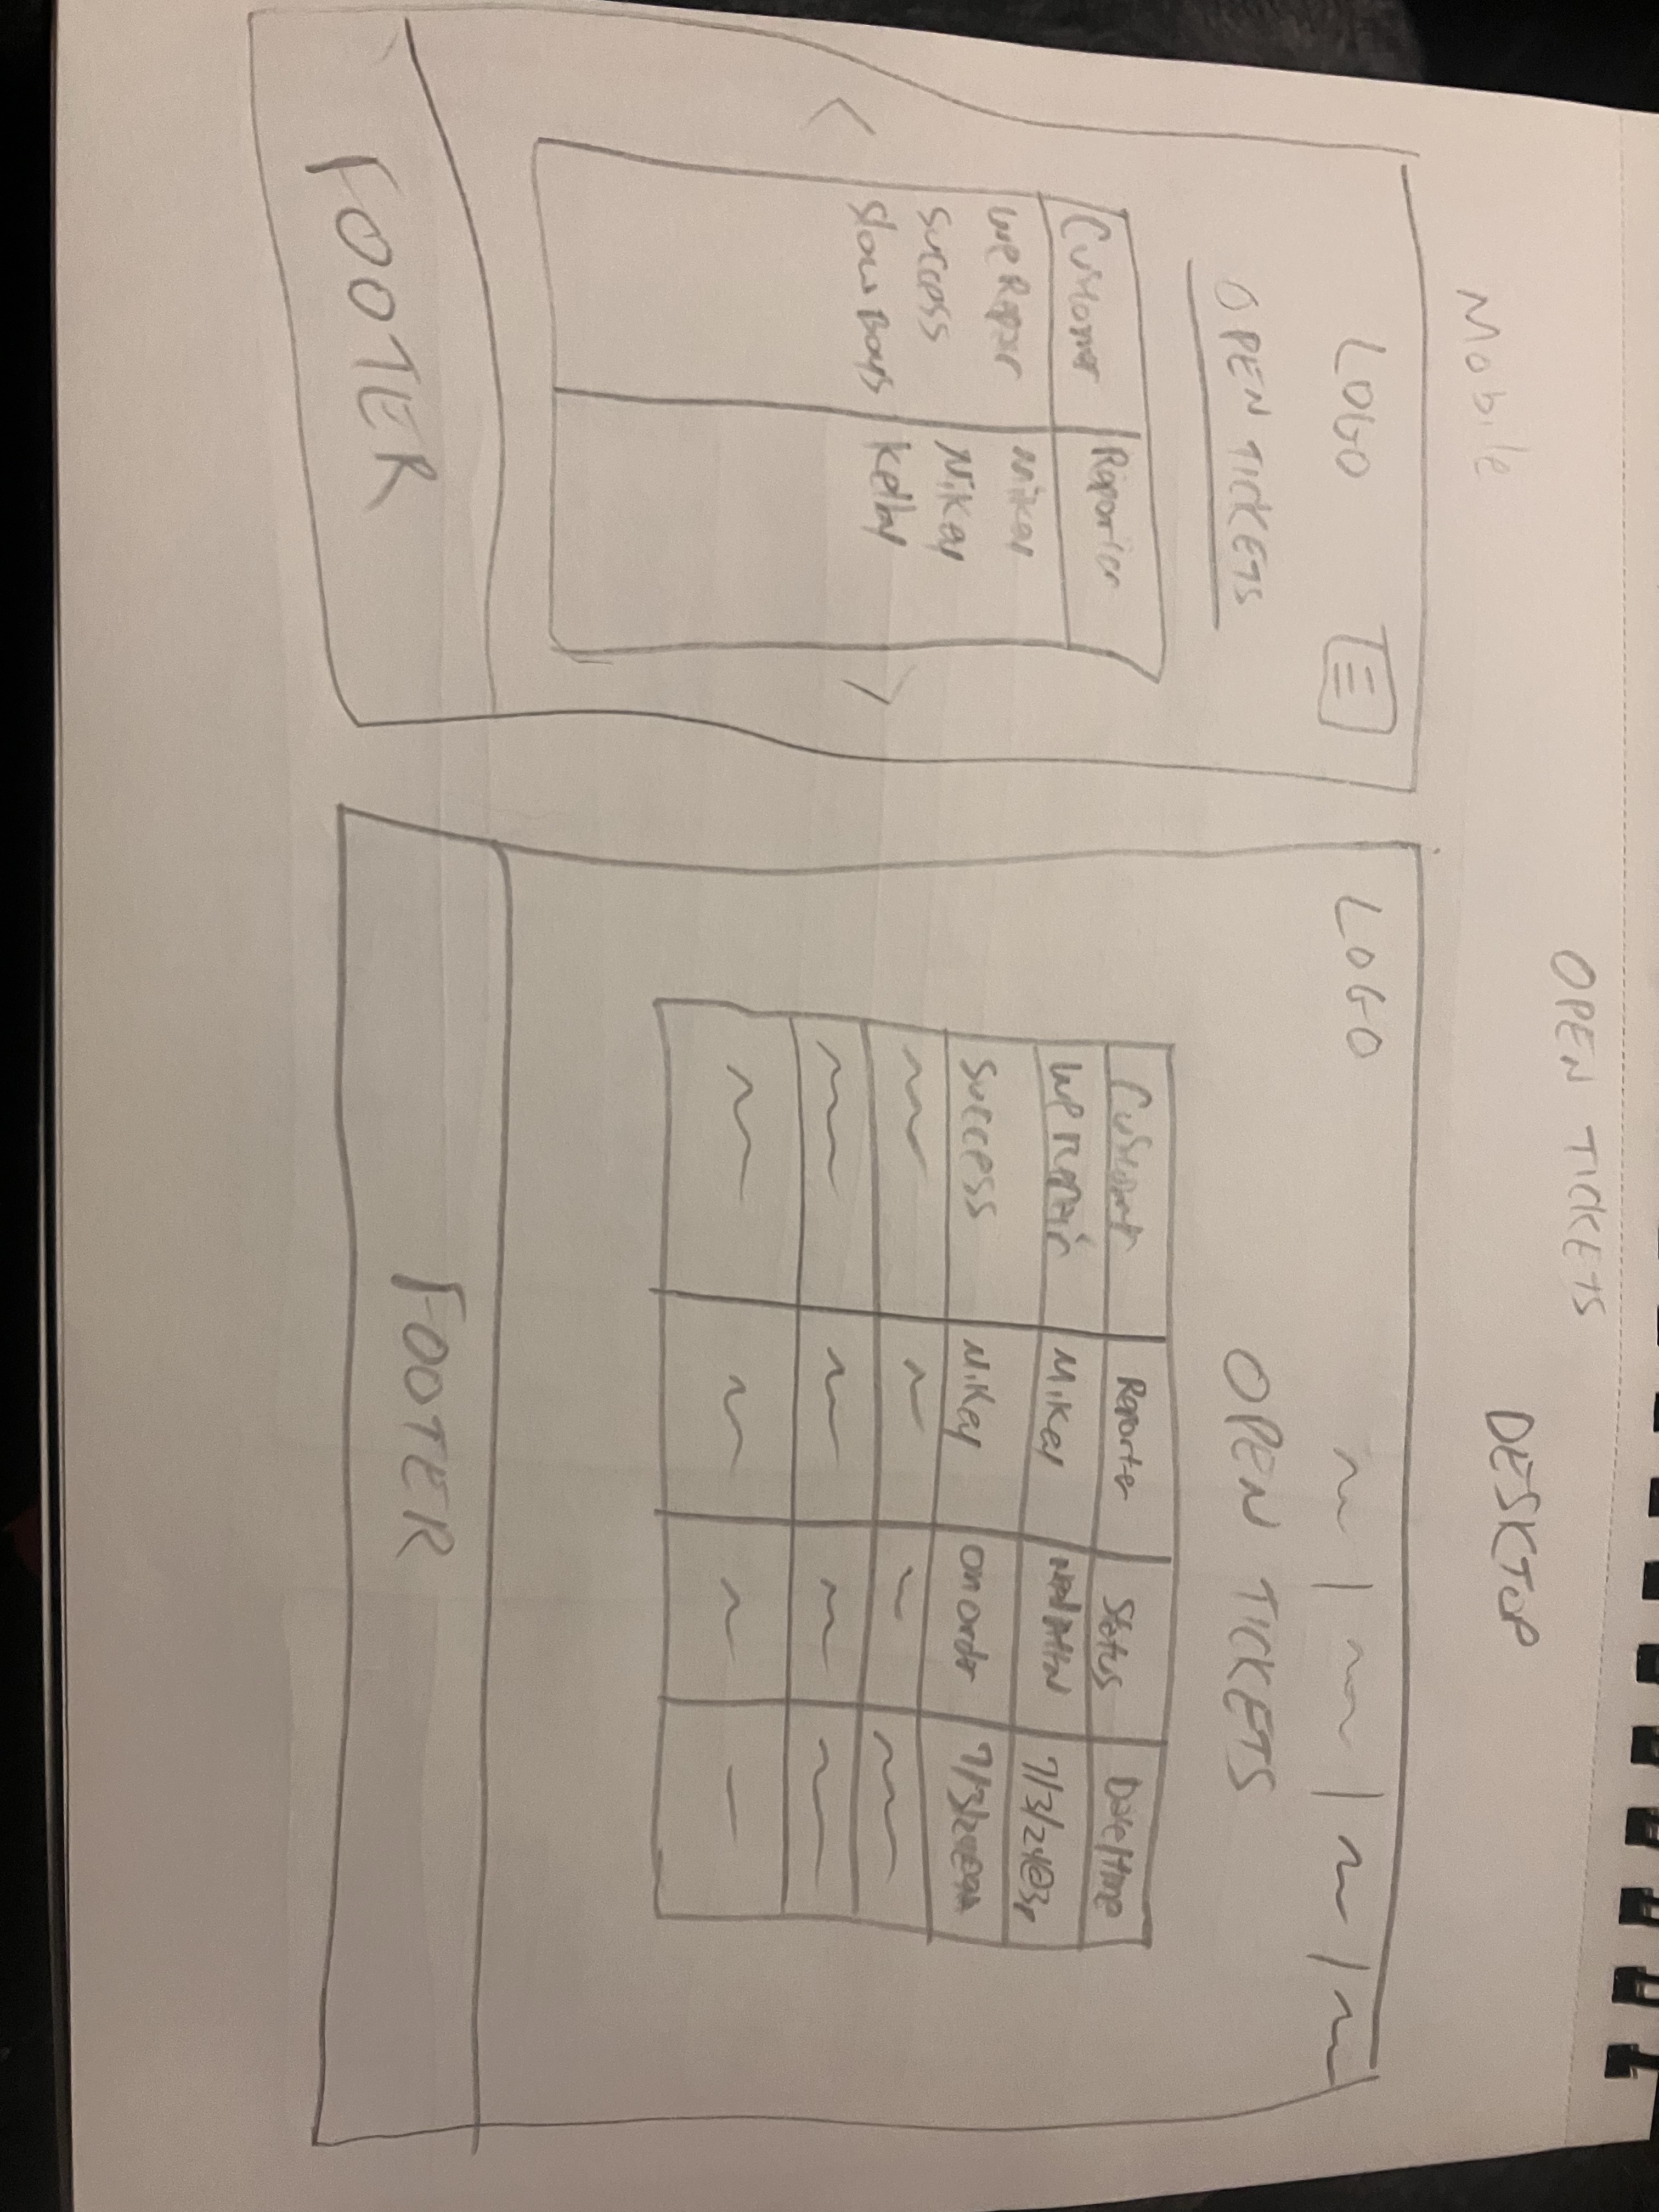 OPEN TICKETS
Mobile
LOGO
OPEN TICKETS
Customer Reporter
WeRepair Mikey
Success Nikey
Slow Boys Kelby
FOOTER
DESKTOP
LOGO
OPEN TICKETS
Customer Reporter Status Date/time
We repair Mikey 7/3/24@3p
Success Nikey on order
FOOTER